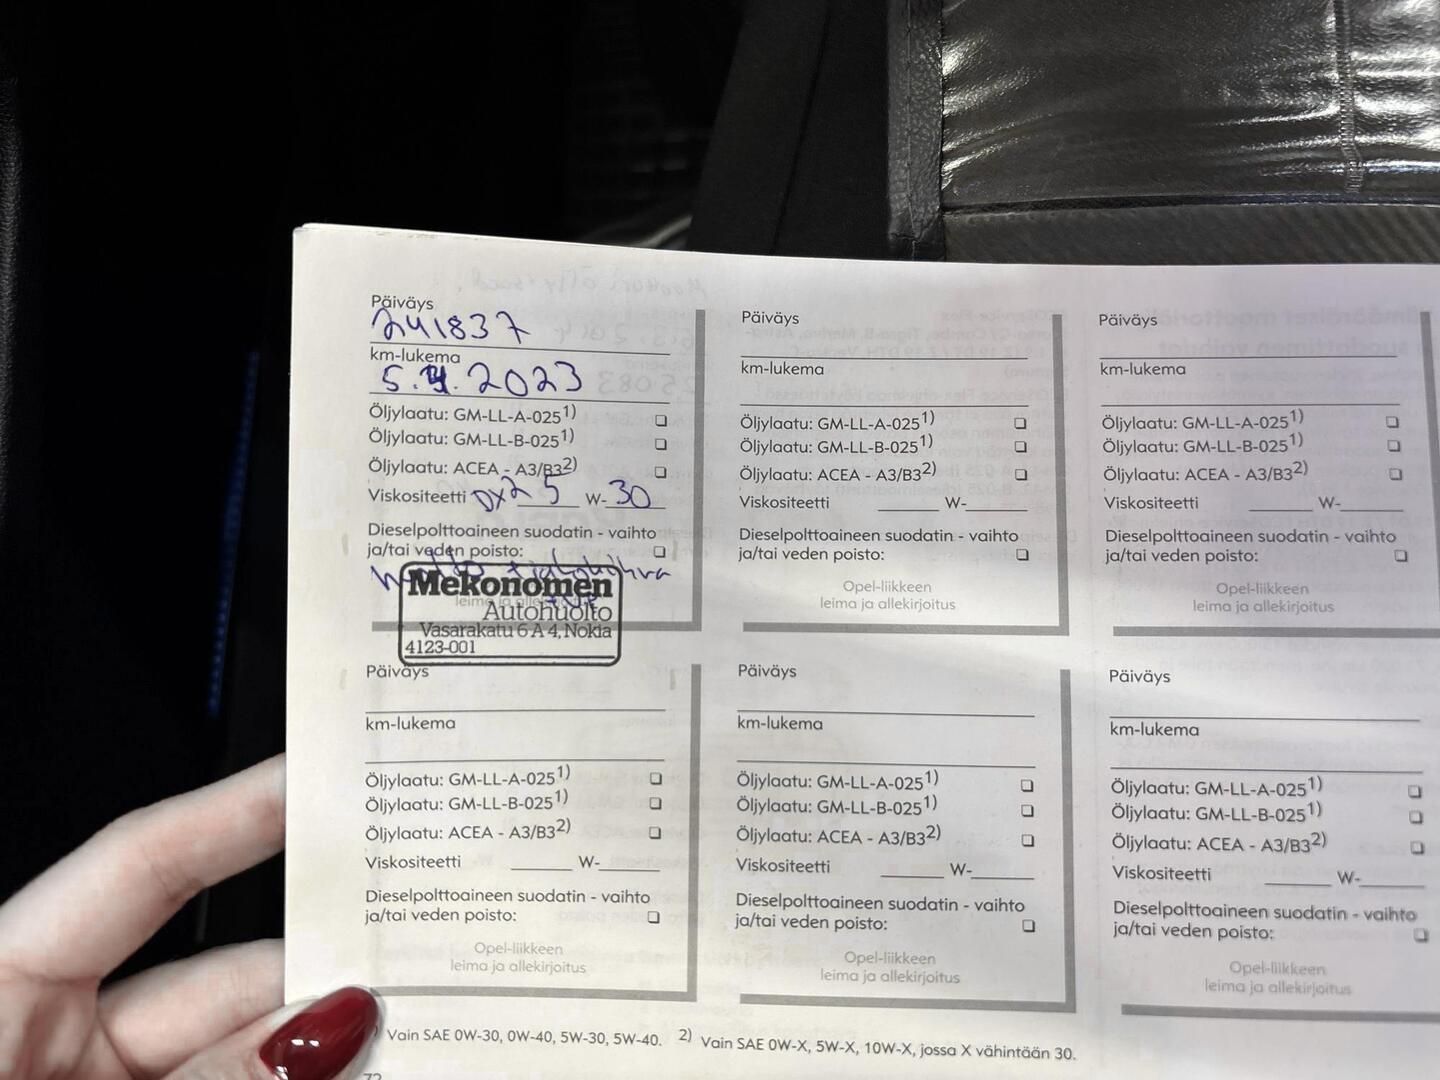 Päiväys
241837
km-lukema
5.4.2023
Öljylaatu: GM-LL-A-025¹⁾
Öljylaatu: GM-LL-B-025¹⁾
Öljylaatu: ACEA - A3/B3²⁾
Viskositeetti DX2 5 W-30
Dieselpolttoaineen suodatin - vaihto
ja/tai veden poisto:
leima ja
Mekonomen
Autohuolto
Vasarakatu 6 A 4, Nokia
4123-001
Päiväys
km-lukema
Öljylaatu: GM-LL-A-025¹⁾
Öljylaatu: GM-LL-B-025¹⁾
Öljylaatu: ACEA - A3/B3²⁾
Viskositeetti W-
Dieselpolttoaineen suodatin - vaihto
ja/tai veden poisto:
Opel-liikkeen
leima ja allekirjoitus
Päiväys
km-lukema
Öljylaatu: GM-LL-A-025¹⁾
Öljylaatu: GM-LL-B-025¹⁾
Öljylaatu: ACEA - A3/B3²⁾
Viskositeetti W-
Dieselpolttoaineen suodatin - vaihto
ja/tai veden poisto:
Opel-liikkeen
leima ja allekirjoitus
Päiväys
km-lukema
Öljylaatu: GM-LL-A-025¹⁾
Öljylaatu: GM-LL-B-025¹⁾
Öljylaatu: ACEA - A3/B3²⁾
Viskositeetti W-
Dieselpolttoaineen suodatin - vaihto
ja/tai veden poisto:
Opel-liikkeen
leima ja allekirjoitus
Päiväys
km-lukema
Öljylaatu: GM-LL-A-025¹⁾
Öljylaatu: GM-LL-B-025¹⁾
Öljylaatu: ACEA - A3/B3²⁾
Viskositeetti W-
Dieselpolttoaineen suodatin - vaihto
ja/tai veden poisto:
Opel-liikkeen
leima ja allekirjoitus
Päiväys
km-lukema
Öljylaatu: GM-LL-A-025¹⁾
Öljylaatu: GM-LL-B-025¹⁾
Öljylaatu: ACEA - A3/B3²⁾
Viskositeetti W-
Dieselpolttoaineen suodatin - vaihto
ja/tai veden poisto:
Opel-liikkeen
leima ja allekirjoitus
Vain SAE 0W-30, 0W-40, 5W-30, 5W-40. ²⁾ Vain SAE 0W-X, 5W-X, 10W-X, jossa X vähintään 30.
72